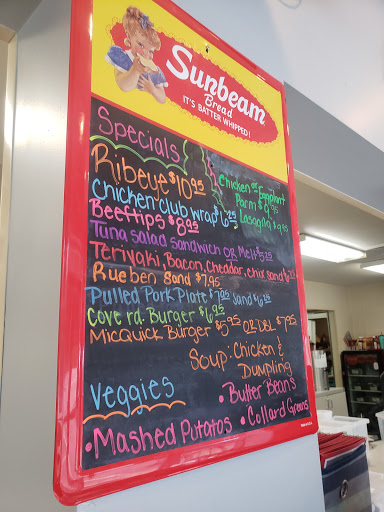 Sunbeam
Bread
IT'S BATTER WHIPPED!
Specials
Ribeye $10.95
Chicken or Eggplant
Parm $9.95
Lasagna $9.95
Chicken club wrap $6.25
Beeftips $8.95
Tuna salad sandwich OR Melt $5.25
Teriyaki, Bacon, cheddar, chix sand
Rueben sand $7.95
Pulled Pork Plate $7.95 Sand $6.25
Cove rd. Burger $6.95
Micquick Burger $5.95 OR DBL $7.95
Soup: Chicken &
Dumpling
Veggies
• Butter Beans
• Mashed Potatos
• Collard Greens